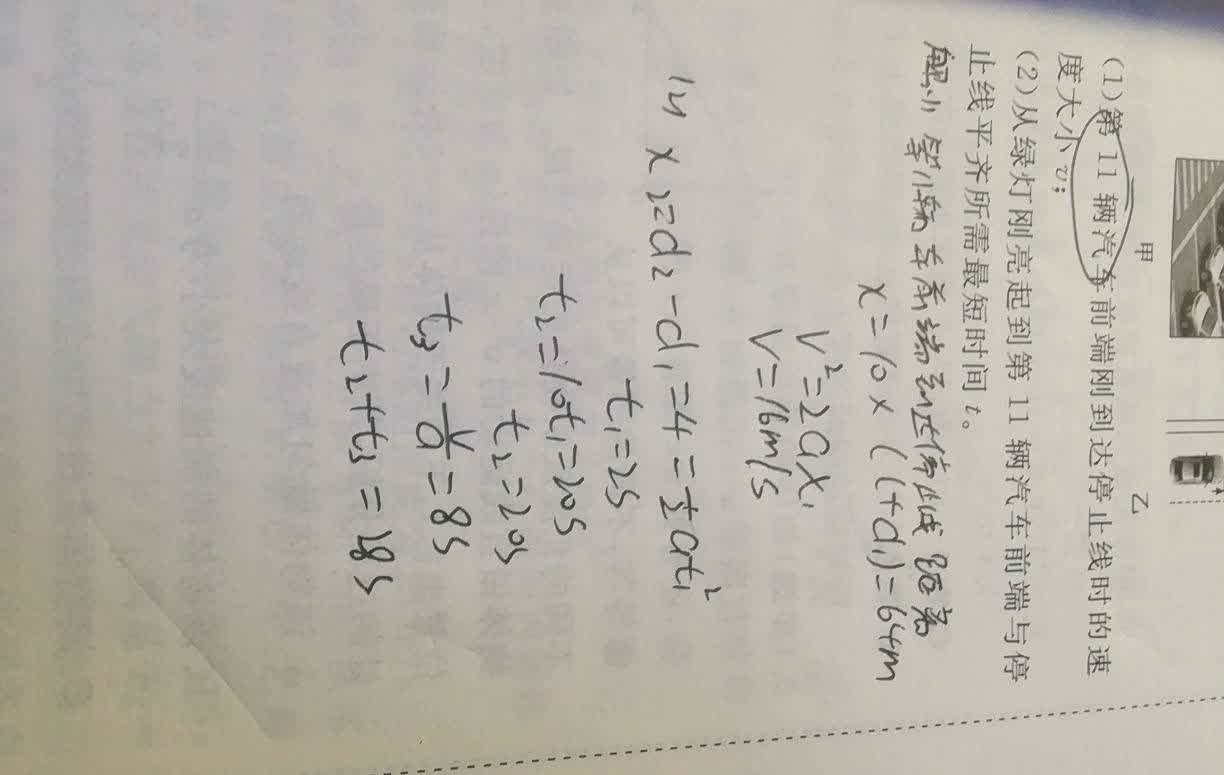 甲 乙
(1)第 11 辆汽车前端刚到达停止线时的速
度大小 v;
(2)从绿灯刚亮起到第 11 辆汽车前端与停
止线平齐所需最短时间 t。
解(1) 第11辆车前端到达停止线距离
x=10×(l+d₁)=64m
v²=2ax₁
v=16m/s
(2) x₂=d₂-d₁=4=½at₁²
t₁=2s
t₂=10t₁=20s
t₂=20s
t₃=v/a=8s
t₂+t₃=28s